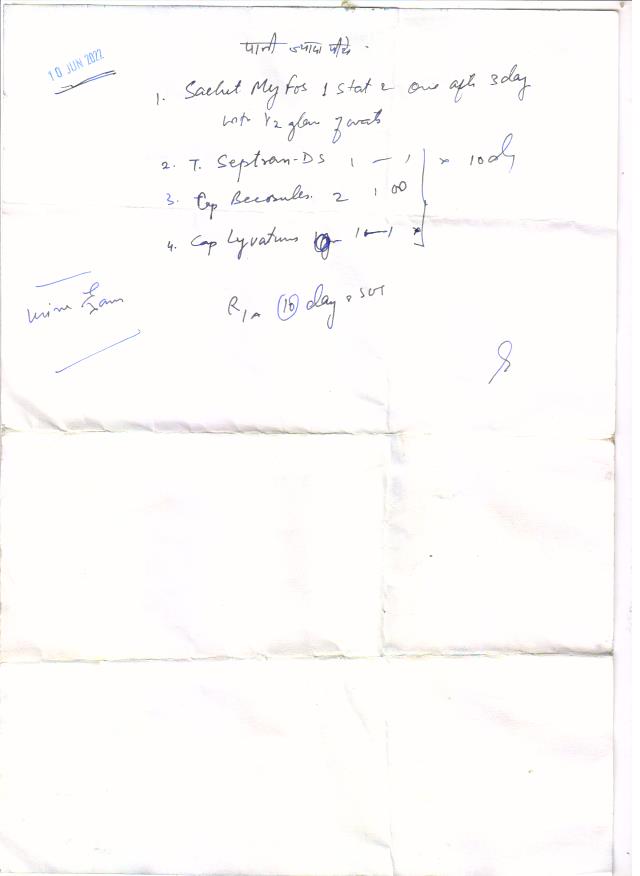 10 JUN 2022
पानी ज्यादा पीये.
1. Sachet Myfos 1 stat & one after 3 day
with 1/2 glass of water
2. T. Septran-DS 1 — 1 x 10 day
3. Cap Becosules. 2 1 OD
4. Cap 1—1
Urine Exam
R/A 10 day